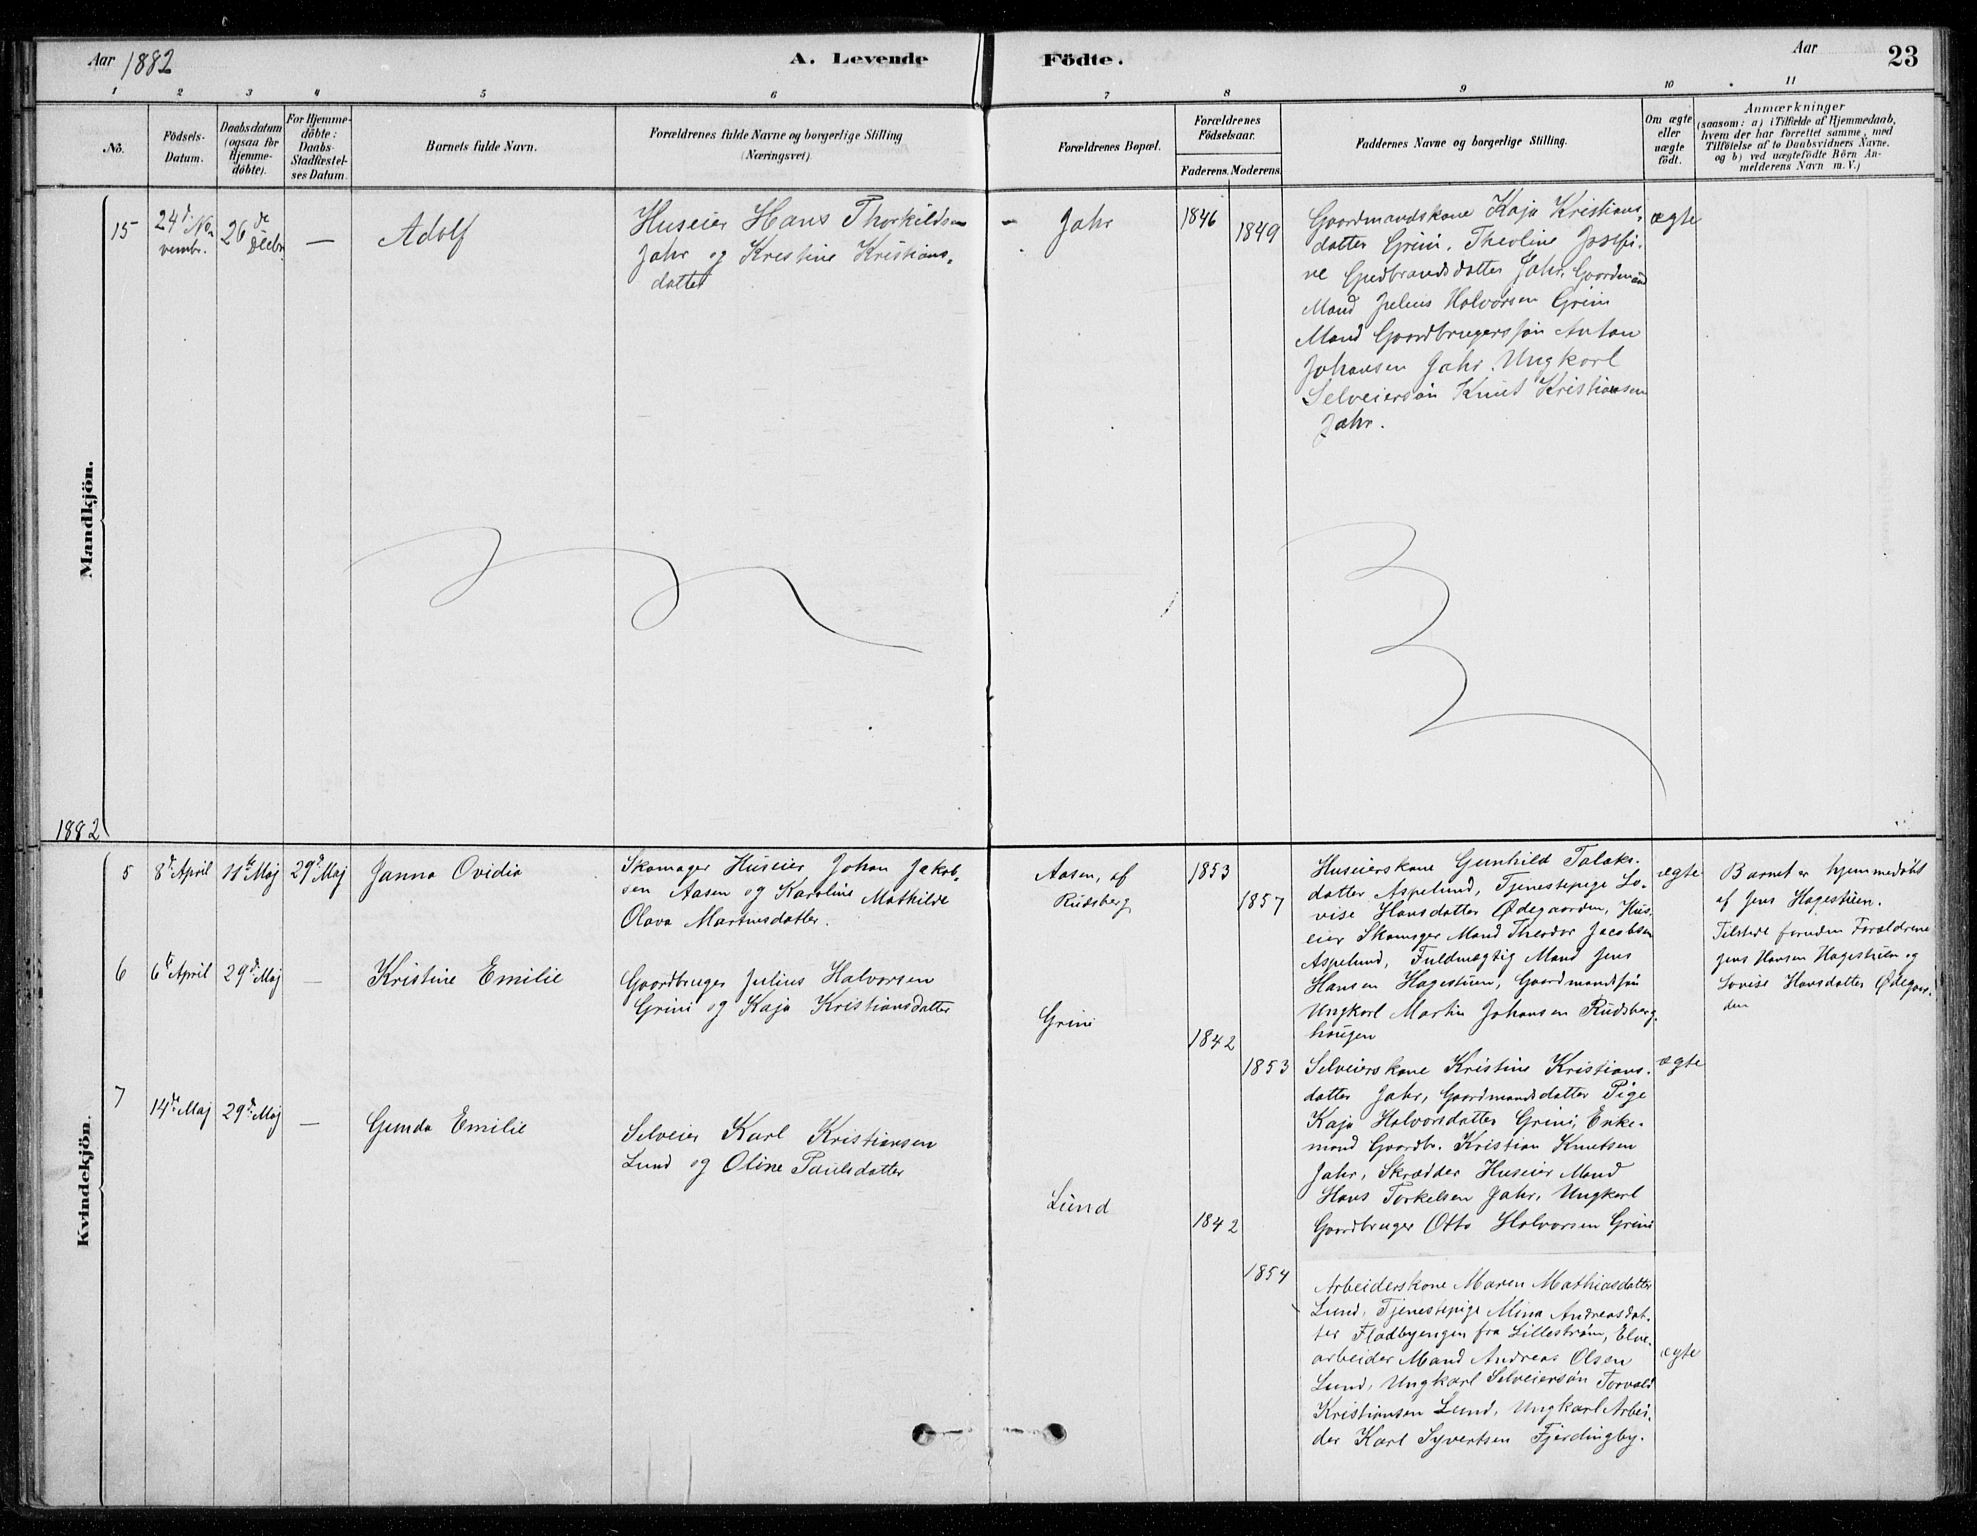 Aar 1882
A. Levende
Födte.
Aar
23
1 2 3 4 5 6 7 8 9 10 11
No.
Födsels-
Datum.
Daabsdatum
(ogsaa for
Hjemme-
döbte).
For Hjemme-
döbte:
Daabs-
Stadfæstel-
ses Datum.
Barnets fulde Navn.
Forældrenes fulde Navne og borgerlige Stilling
(Næringsvei)
Forældrenes Bopæl.
Forældrenes
Födselsaar.
Faderens. Moderens.
Faddernes Navne og borgerlige Stilling.
Om ægte
eller
uægte
födt.
Anmærkninger
(saasom: a) i Tilfælde af Hjemmedaab,
hvem der har forrettet samme, med
Tilföielse af to Daabsvidners Navne,
og b) ved uægtefödte Börn An-
melderens Navn m. V.)
Mandkjön.
15
24d No-
vembr.
26de
Decbr.
—
Adolf
Huseier Hans Thorkildsen
Jahr og Kristine Kristians-
datter
Jahr
1846
1849
Gaardmandskone Kaja Kristians-
datter Grini, Theoline Josefi-
ne Gudbrandsdatter Jahr, Gaardmand
Mand Julius Halvorsen Grini
Mand Gaardbrugersøn Anton
Johansen Jahr, Ungkarl
Selveiersøn Knut Kristiansen
Jahr.
ægte
1882
Kvindekjön.
5
8d April
11te Maj
29d Maj
Janna Ovidia
Skomager Huseier Johan Jakob-
sen Aasen og Karoline Mathilde
Olava Martinsdatter.
Aasen, af
Rudsberg
1853
1857
Huseierskone Gunhild Talaks-
datter Aspelund, Tjenestepige Lo-
vise Hansdatter Ødegaarden, Hus-
eier Skomager Mand Theodor Jacobsen
Aspelund, Fuldmægtig Mand Jens
Hansen Hagestuen, Gaardmandsøn
Ungkarl Martin Johansen Rudsberg-
haugen
ægte
Barnet er hjemmedøbt
af Jens Hagestuen.
Tilstede foruden Forældrene
Jens Hansen Hagestuen og
Lovise Hansdatter Ødegaar-
den
6
6te April
29d Maj
—
Kristine Emilie
Gaardbruger Julius Halvorsen
Grini og Kaja Kristiansdatter
Grini
1842
1853
Selveierskone Kristine Kristians-
datter Jahr, Gaardmandsdatter Pige
Kaja Halvorsdatter Grini, Enke-
mand Gaardbr. Kristian Knutsen
Jahr, Skrædder Huseier Mand
Hans Torkelsen Jahr, Ungkarl
Gaardbruger Otto Halvorsen Grini
ægte
7
14de Maj
29d Maj
—
Gunda Emilie
Selveier Karl Kristiansen
Lund og Oline Paulsdatter
Lund
1842
1854
Arbeiderskone Maren Mathiasdatter
Lund, Tjenestepige Mina Andreasdat-
ter Fladbyengen fra Lillestrøm, Elve-
arbeider Mand Andreas Olsen
Lund, Ungkarl Selveiersøn Torvald
Kristiansen Lund, Ungkarl Arbei-
der Karl Syvertsen Fjerdingby.
ægte